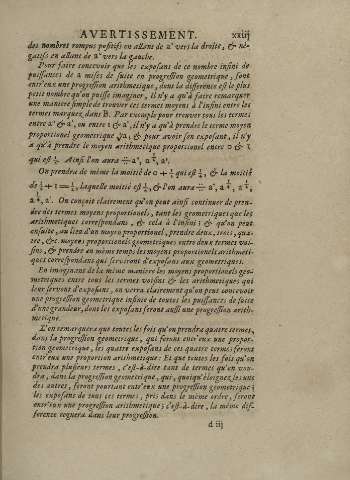 AVERTISSEMENT. xxiij
des nombres rompus positifs en allant de aº vers la droite, & né-
gatifs en allant de aº vers la gauche.
Pour faire concevoir que les exposans de ce nombre infini de
puissances de a mises de suite en progression geometrique, sont
entr'eux une progression arithmetique, dont la différence est le plus
petit nombre qu'on puisse imaginer, il n'y a qu'à faire remarquer
une maniere simple de trouver ces termes moyens à l'infini entre les
termes marquez dans B. Par exemple pour trouver tous les termes
entre aº & a¹, ou entre 1 & a¹, il n'y a qu'à prendre le terme moyen
proportionel geometrique √a, & pour avoir son exposant, il n'y
a qu'à prendre le moyen arithmetique proportionel entre 0 & 1
qui est ½. Ainsi l'on aura ∺ aº, a½, a¹.
On prendra de même la moitié de 0 + ½ qui est ¼, & la moitié
de ½ + 1 = 3/2, laquelle moitié est ¾, & l'on aura ∺ aº, a¼, a½,
a¾, a¹. On conçoit clairement qu'on peut ainsi continuer de pren-
dre des termes moyens proportionels, tant les geometriques que les
arithmetiques correspondans, & cela à l'infini; & qu'on peut
ensuite, au lieu d'un moyen proportionel, prendre deux, trois, qua-
tre, &c. moyens proportionels geometriques entre deux termes voi-
sins, & prendre en même temps les moyens proportionels arithmeti-
ques correspondans qui serviront d'exposans aux geometriques.
En imaginant de la même maniere les moyens proportionels geo-
metriques entre tous les termes voisins & les arithmetiques qui
leur servent d'exposans, on verra clairement qu'on peut concevoir
une progression geometrique infinie de toutes les puissances de suite
d'une grandeur, dont les exposans feront aussi une progression arith-
metique.
L'on remarquera que toutes les fois qu'on prendra quatre termes,
dans la progression geometrique, qui feront entr'eux une propor-
tion geometrique, les quatre exposans de ces quatre termes feront
entr'eux une proportion arithmetique: Et que toutes les fois qu'on
prendra plusieurs termes, c'est-à-dire tant de termes qu'on vou-
dra, dans la progression geometrique, qui, quoiqu'éloignez les uns
des autres, feront pourtant entr'eux une progression geometrique;
les exposans de tous ces termes, pris dans le même ordre, feront
entr'eux une progression arithmetique; c'est-à-dire, la même dif-
ference regnera dans leur progression.
d iij